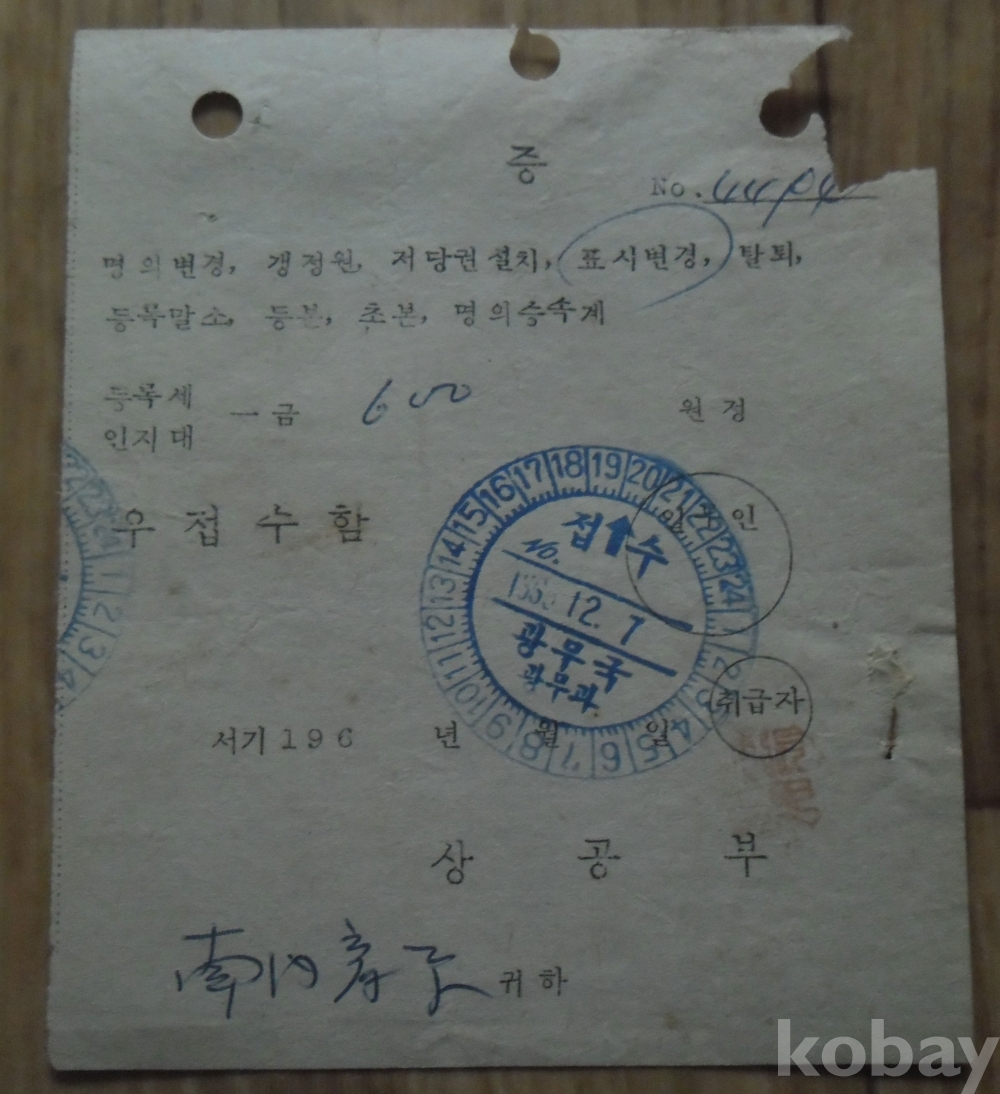 증
No.
명의변경, 갱정원, 저당권설치, 표시변경, 탈퇴,
등록말소, 등본, 초본, 명의승속계
등록세
인지대
一금 600 원정
우접수함
인
15 16 17 18 19 20 21 22 23 24
접수
No.
12. 7
광무국
광무과
14 13 12 11 10 9 8 7 6 5 4 3
23 24 1 2 3 4
취급자
서기 196 년 월 일
상공부
귀하
kobay